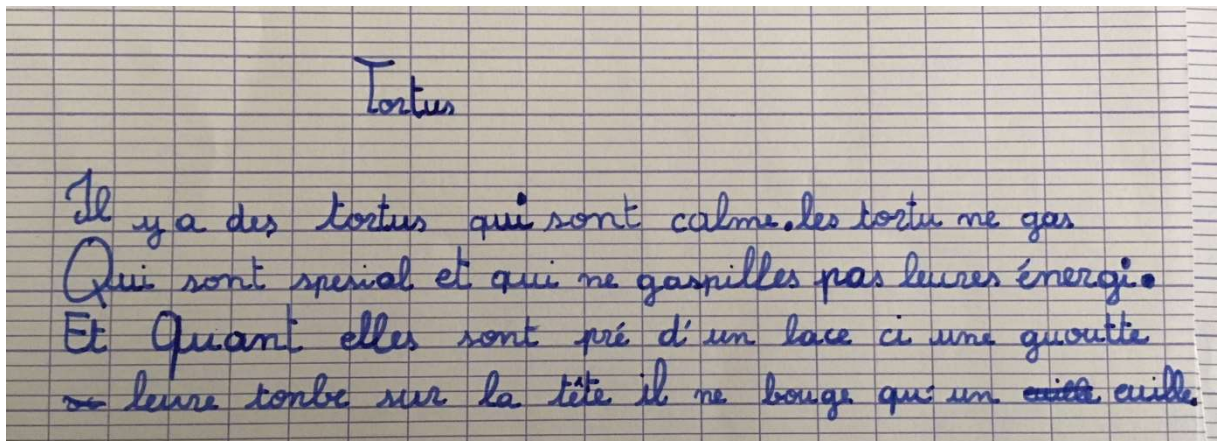 Tortus
Il y a des tortus qui sont calme. les tortu ne gas
Qui sont spesial et qui ne gaspilles pas leures énergi.
Et Quant elles sont pré d'un lace ci une guoutte
leure tonbe sur la tête il ne bouge qu'un euille.